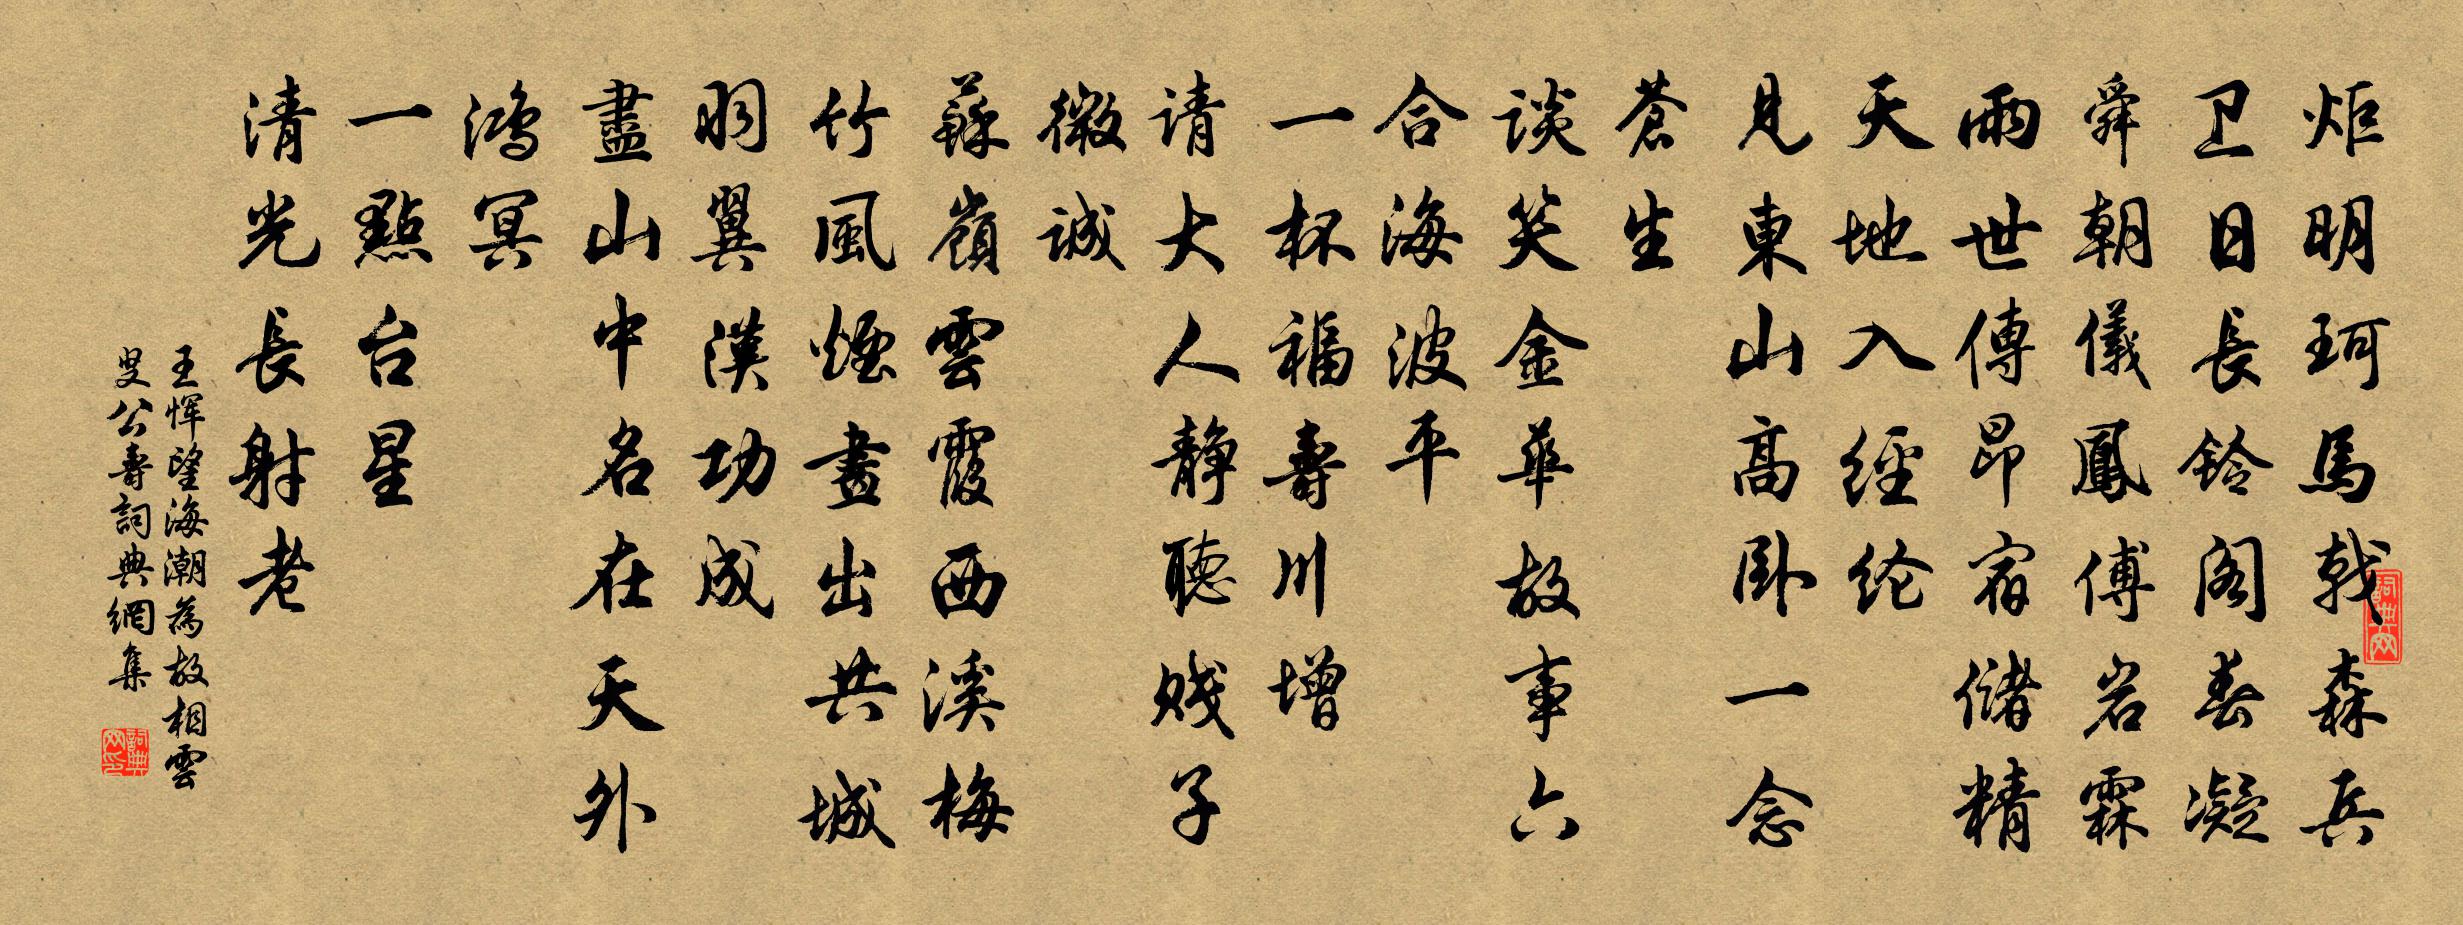 炬明珂馬戟森兵
卫日長鈴阁春凝
舜朝儀鳳傅岩霖
雨世傳昴宿儲精
天地入經纶
見東山高卧一念
蒼生
谈笑金華故事六
合海波平
一杯福壽川增
请大人靜聽賤子
微誠
蘇嶺雲霞西溪梅
竹風煙畫出共城
羽翼漢功成
盡山中名在天外
鴻冥
一點台星
清光長射老
王惲望海潮為故相雲
叟公壽詞典網集